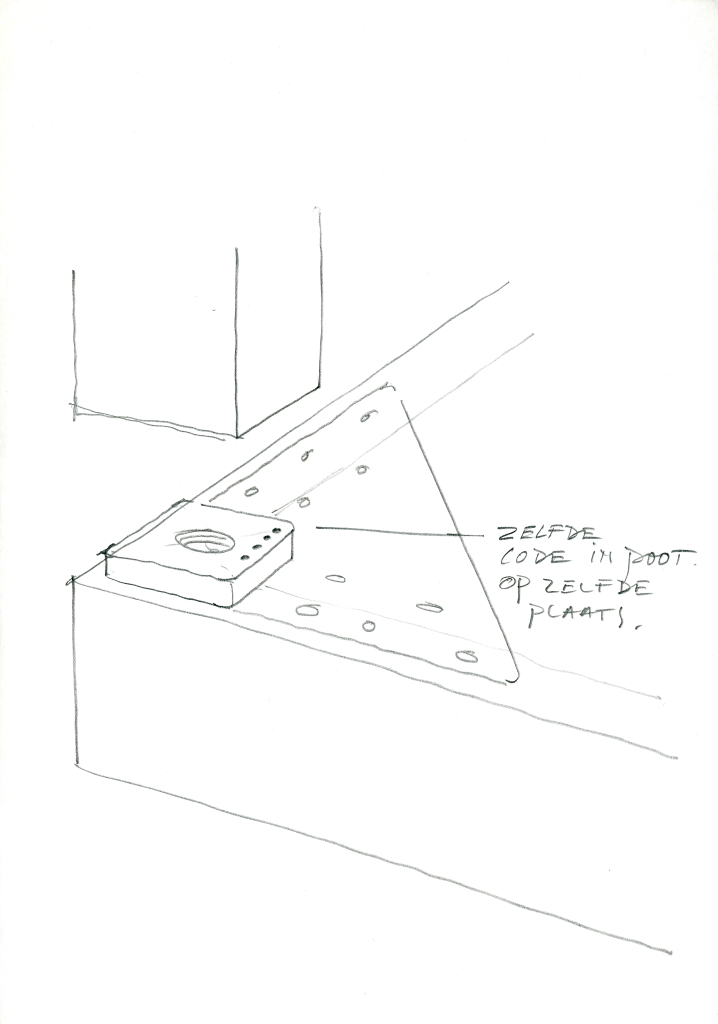 ZELFDE
CODE IN POOT.
OP ZELFDE
PLAATS.